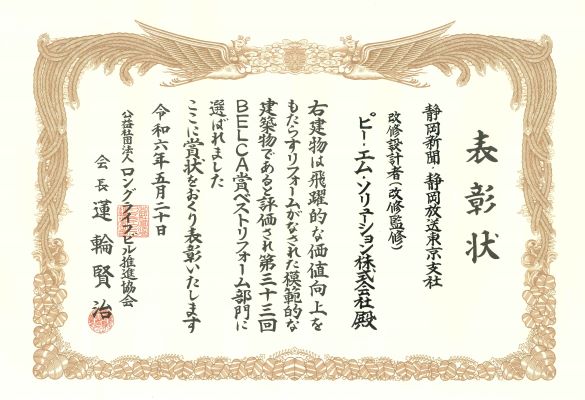 表彰状
静岡新聞・静岡放送東京支社
改修設計者(改修監修)
ピー・エム・ソリューション株式会社 殿
右建物は飛躍的な価値向上を
もたらすリフォームがなされた模範的な
建築物であると評価され第三十三回
BELCA賞ベストリフォーム部門に
選ばれました
ここに賞状をおくり表彰いたします
令和六年五月二十日
公益社団法人 ロングライフビル推進協会
会長 蓮輪賢治